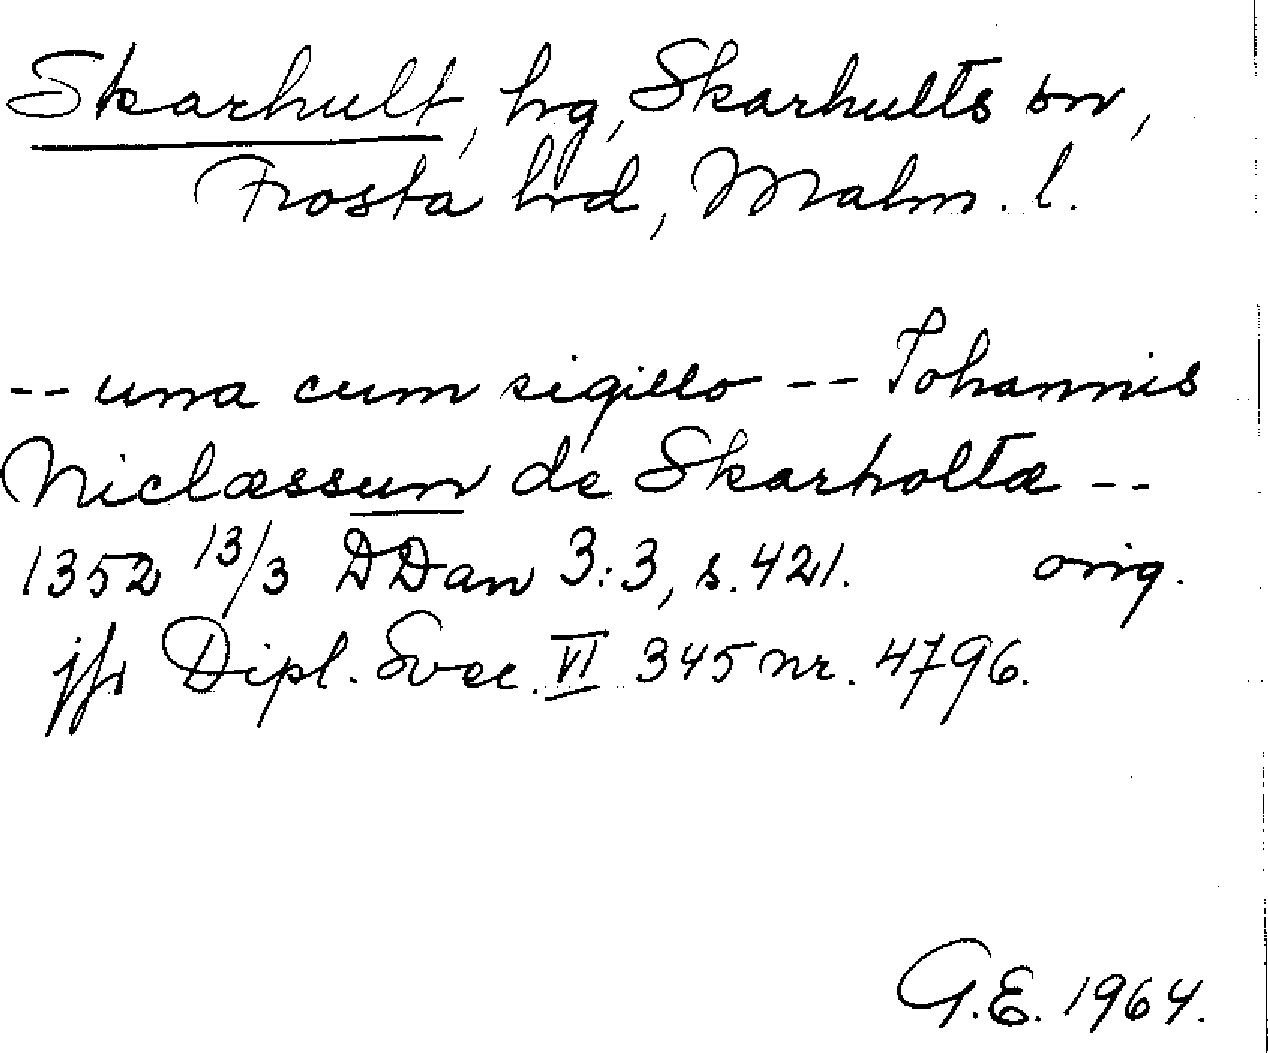 Skarhult, hg, Skarhults sn,
Frosta hrd, Malm. l.
-- una cum sigillo -- Iohannis
Niclæssun de Skarholtæ --
1352 13/3 DDan 3:3, s. 421. orig.
jfr Dipl. Svec. VI 345 nr. 4796.
G.E. 1964.